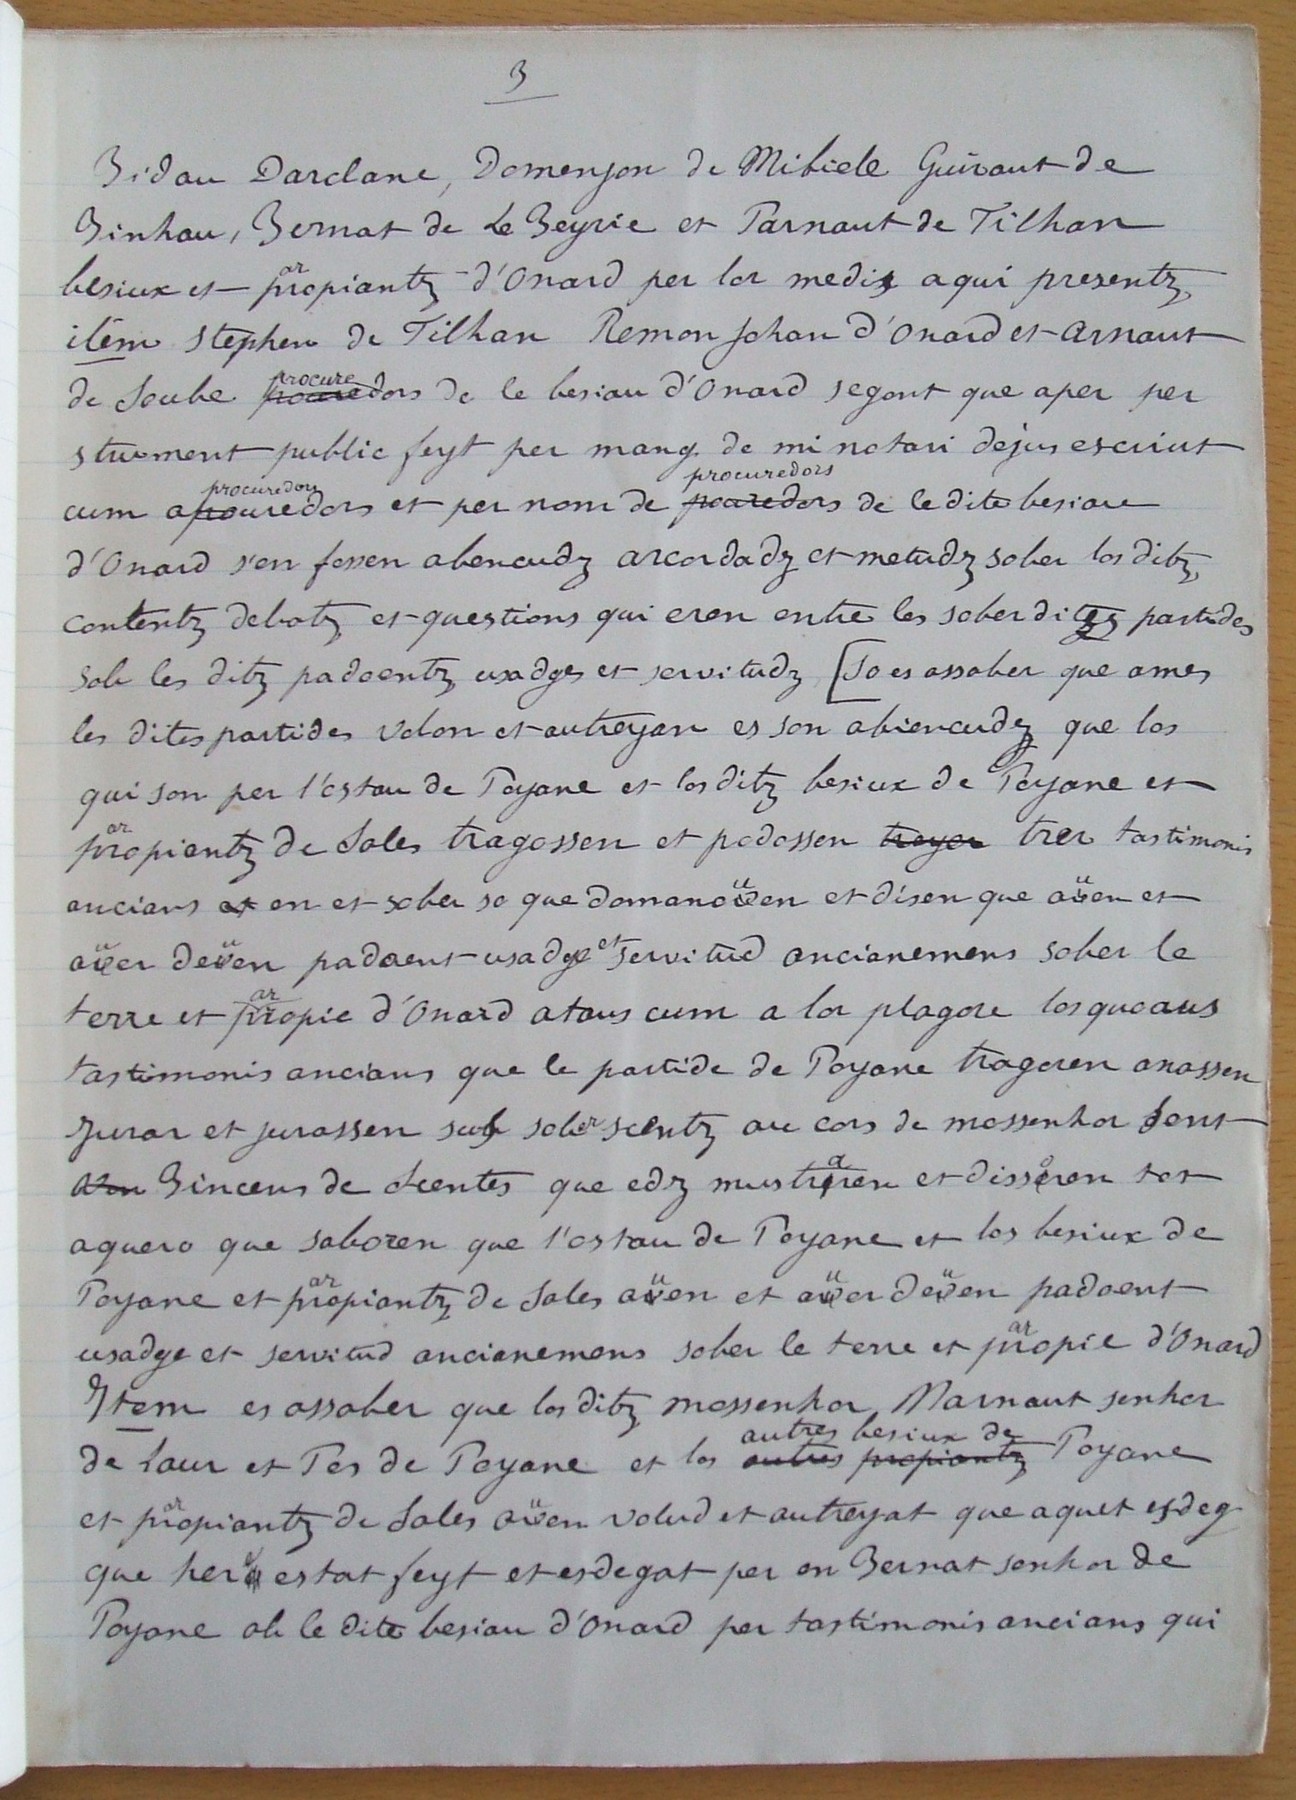 3
Bidau Darclane, Domenjon de Mibiele Guiraut de
Binhau, Bernat de Le Beyrie et Parnaut de Tilhan
besiux et paropiantz d'Onard per lor medis aqui presentz,
item Stephen de Tilhan Remon Johan d'Onard et Arnaut
de Soube procuredors de le besiau d'Onard segont que aper per
strument public feyt per mang de mi notari dejus escriut
cum a procuredors et per nom de procuredors de le dite besiau
d'Onard s'en fossen abencudz arcordadz et metudz sober los ditz,
contentz debatz et questions qui eren entre les soberdites partides
sob les ditz padoentz usadges et servitudz [So es assaber que ames
les dites partides volon et autreyan es son abiencudz que los
qui son per l'ostau de Poyane et los ditz besiux de Poyane et
paropientz de Soles tragossen et podossen treyer trer tastimonis
ancians et en et sober so que domanaüen et disen que aüen et
aüer deüen padoent usadge et servitud ancianemens sober le
terre et paropie d'Onard ataus cum a lor plagore losquoaus
tastimonis ancians que le partide de Poyane trageren anassen
jurar et jurassen sus sober sentz au cors de mossenhor Sent
Bincens de Scentes que edz mustraren et disseren tot
aquero que saboren que l'ostau de Poyane et los besiux de
Poyane et paropiantz de Soles aüen et aüer deüen padoent
usadge et servitud ancianemens sober le terre et paropie d'Onard
Item es assaber que los ditz mossenhor Narnaut senhor
de Laur et Pes de Poyane et los autres besiux de Poyane
et paropiantz de Soles aüen volud et autreyat que aquet esdeg
que here estat feyt et esdegat per en Bernat senhor de
Poyane ab le dite besiau d'Onard per tastimonis ancians qui